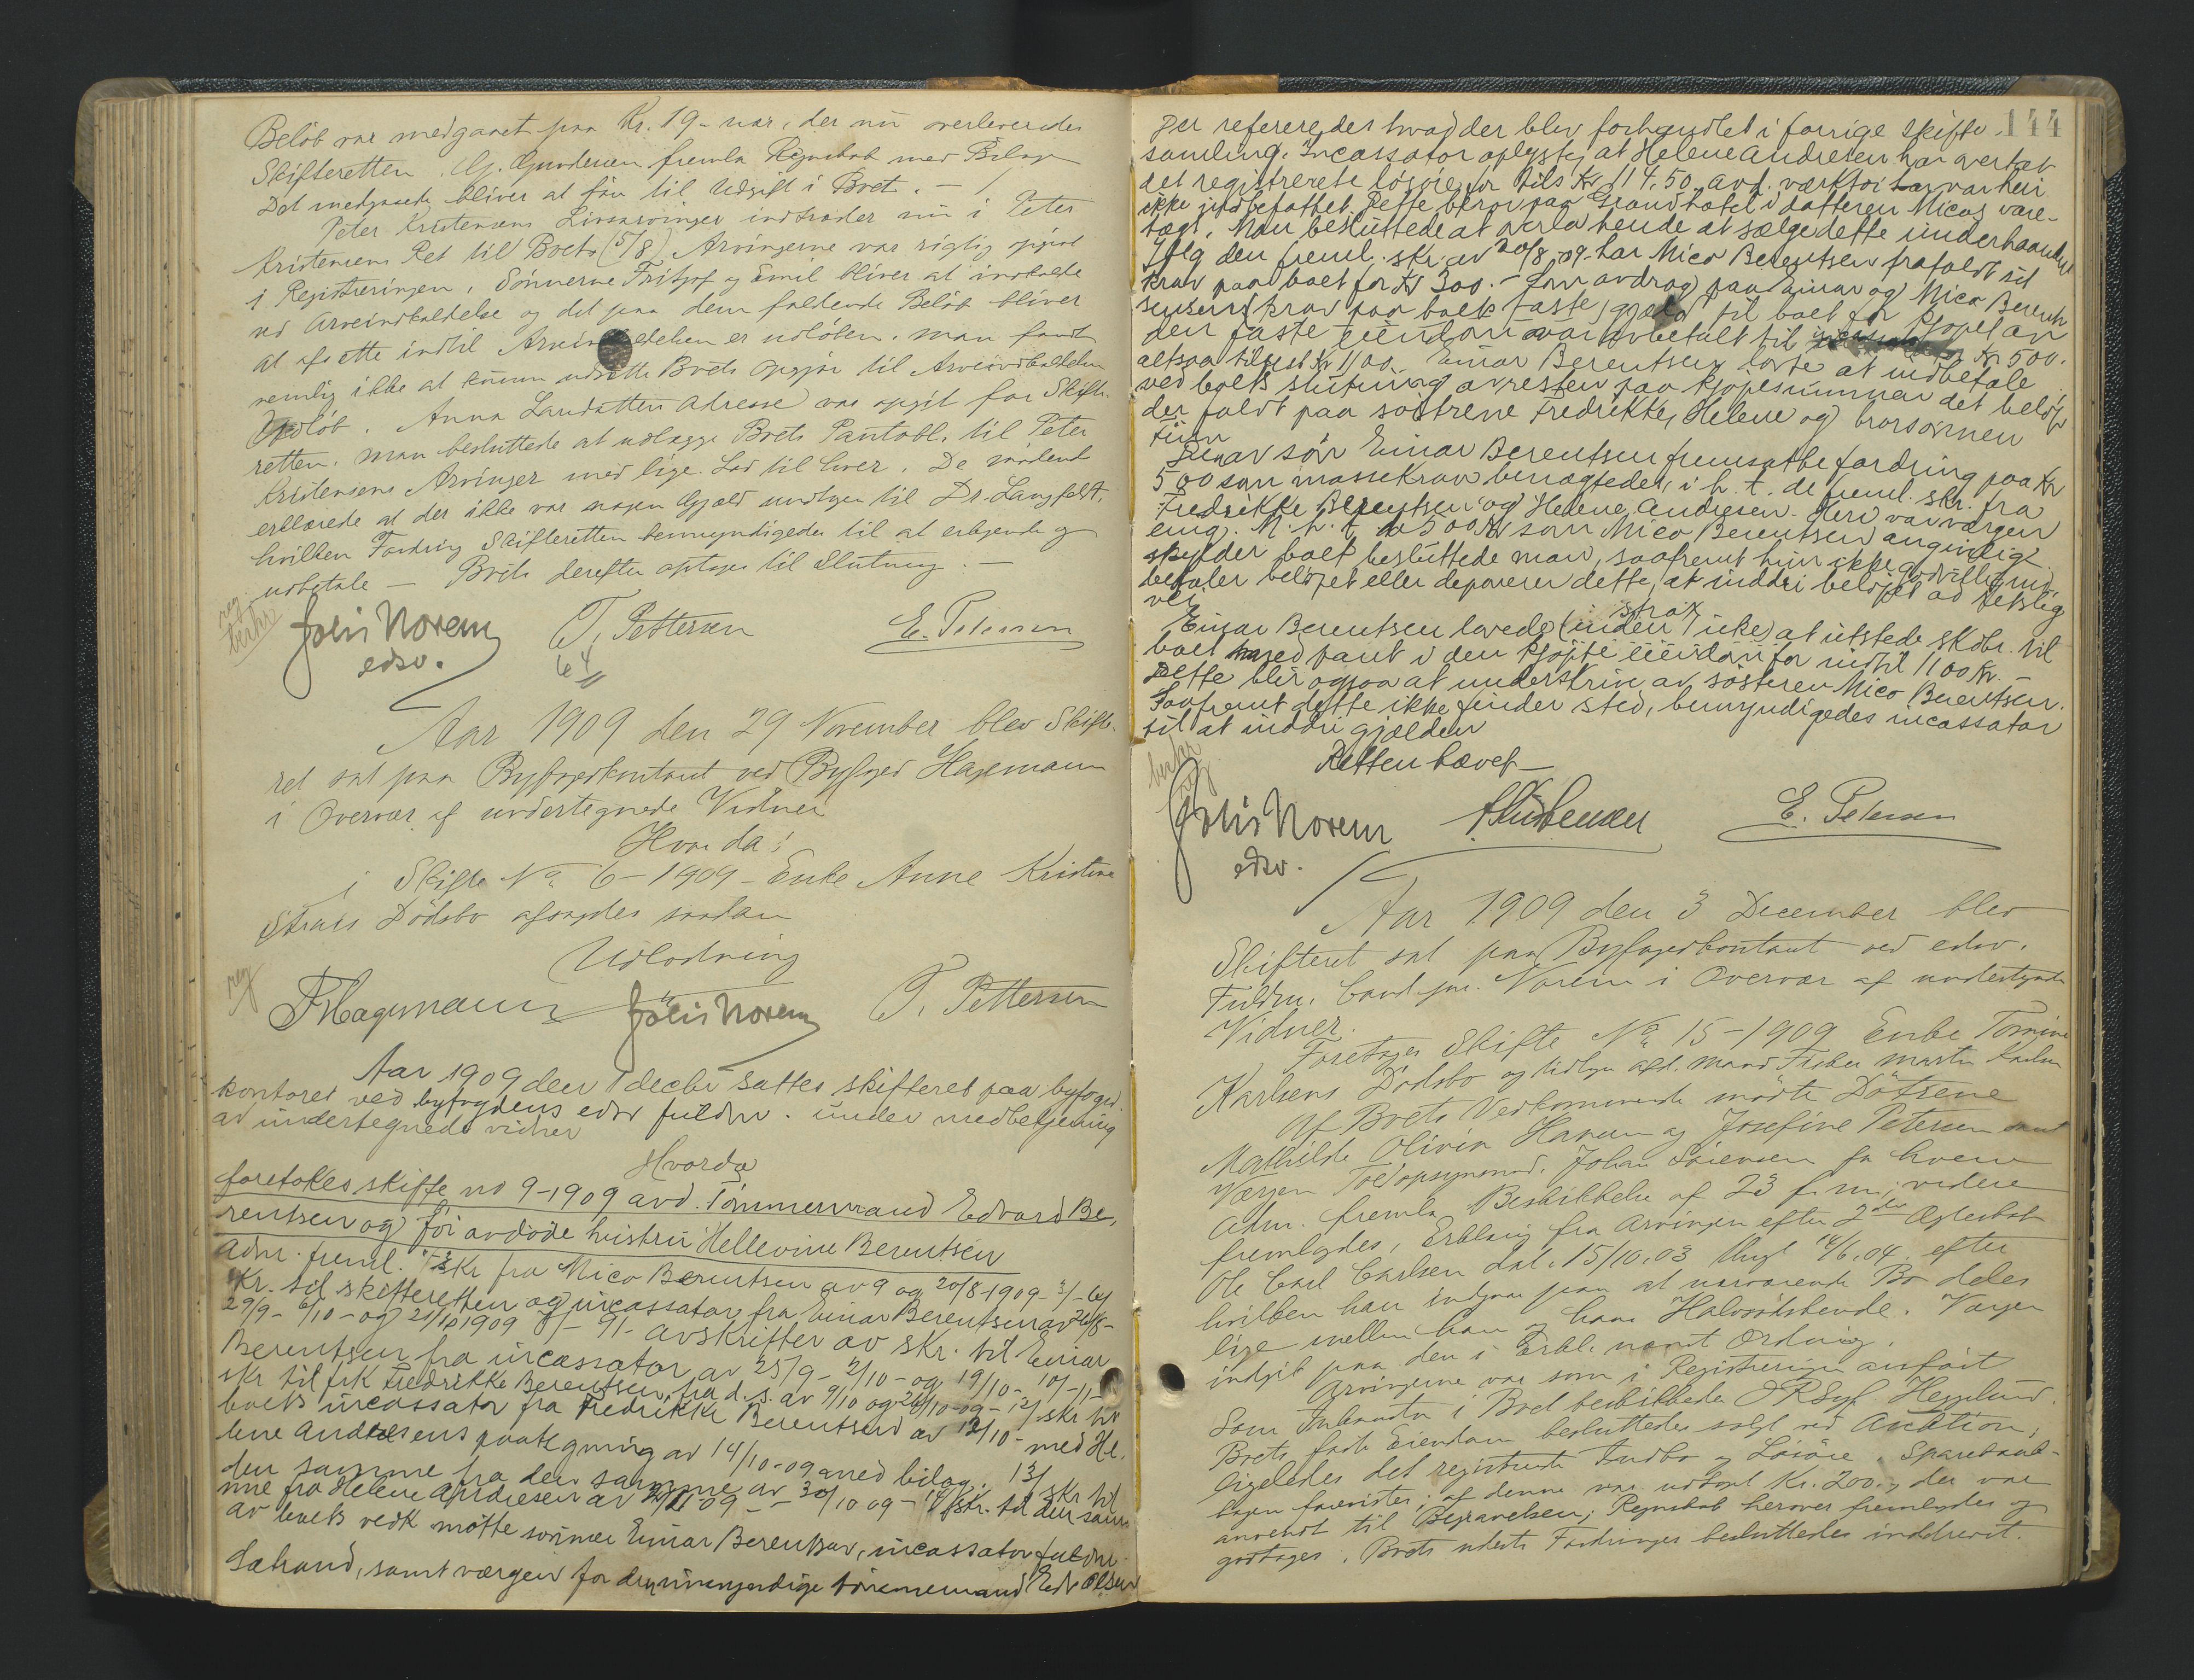 Beløb var medgaaet paa Kr. 19- nar, der nu overleveredes
Skifteretten. Gundersen fremla Regnskab med Bilag
Det medgaaede bliver at føre til Udgift i Boet. –
Peter Kristensens Livsarvinger indtræder nu i Peter
Kristensens Ret til Boets (5/8) Arvingerne var rigtig opgivet
i Registreringen. Sønnerne Fritjof og Emil bliver at indkalde
ved Arveindkaldelse og det paa dem faldende Beløb bliver
at afsætte indtil Arveindkaldelsen er udløben. man fandt
nemlig ikke at kunne udsætte Boets Opgjør til Arveindkaldelsens
Udløb. Anna Landsattens Adresse var opgit for Skifte-
retten. man besluttede at udlægge Boets Pantobl. til Peter
Kristensens Arvinger med lige Lod til hver. De mødende
erklærede at der ikke var nogen Gjæld undtagen til Dr. Langfeldt,
hvilken Fordring Skifteretten bemyndigedes til at erkjende og
udbetale – Boets derefter optages til Slutning. –
reg.
berkr
Jølis Norem T. Pettersen E. Petersen
edsv. 64
Aar 1909 den 29 November blev Skifte-
ret sat paa Byfogedkontoret ved Byfoged Hagemann
i Overvær af undertegnede Vidner
Hvor da:
i Skifte No 6-1909 – Enke Anne Kristine
Strais Dødsbo afsagdes saadan
Udlodning
reg
Hagemann Jølis Norem T. Pettersen
Aar 1909 den 1 decbr sattes skifteret paa byfoged-
kontoret ved byfogdens edsv fuldm. under medbetjening
av undertegnede vidner
Hvorda
foretokes skifte no 9-1909 avd. Tømmermand Edvard Be-
rentsen og før avdøde hustru Hellevine Berentsen
Adm. freml. skr fra Mico Berentsen av 9 og 20/8-1909-
Kr. til skifteretten og incassator fra Einar Berentsen av
29/9- 6/10- og 21/10 1909 8/- 9/- avskrifter av skr. til Einar
Berentsen fra incassator av 25/9- 2/10- og 19/10- 10/- 11/-
skr til frk Fredrikke Berentsen, fra d. s. av 9/10 og 26/10-09- 12/ skr til
boets incassator fra Fredrikke Berentsen av 12/10- med He-
lene Andresens paategning av 14/10-09 med bilag. 13/ skr til
den samme fra den samme av 30/10 09 – skr. til den sam-
me fra Helene Andresen av 09 –
av boets vedk møtte sønnen Einar Berentsen, incassator fuldm.
Sæhand, samt værgen for den umyndige tømmermand Edv Olsen
144
Der refereredes hvad der blev forhandlet i forrige skifte-
samling. Incassator oplyste, at Helene Andresen har overtat
det registrerete løsøre for tils Kr 114.50. avd. værktøi var heri
ikke indbefattet. Dette beror paa Grand hotel i datteren Micos vare-
tægt. Man besluttede at overla hende at sælge dette underhaanden
Iflg den freml. skr. av 20/8-09- har Mico Berentsen frafaldt sit
krav paa boet for Kr 300.– som avdrag paa Einar og Mico Berent-
sensens krav paa boets faste gjæld til boet for kjøpet av
den faste eiendom var avbetalt til Kr 500.
altsaa tilrest Kr 1100. Einar Berentsen lovte at indbetale
ved boets slutning av resten paa kjøpesummen det beløp
der faldt paa søstrene Fredrikke, Helene og brorsønnen
Finn
Den av søn Einar Berentsen fremsatte fordring paa Kr
500 som massekrav benægtedes, i h. t. de freml. skr. fra
Fredrikke Berentsen og Helene Andresen. Heri var værgen
enig. M. h. t. de 500 Kr som Mico Berentsen angivelig
skylder boet besluttede man, saafremt hun ikke godvillig ind-
betaler beløpet eller deponerer dette, at inddri beløpet ad retslig
vei
Einar Berentsen lovede strax (inden 1 uke) at utstede skdbr. til
boet med pant i den kjøpte eiendom for indtil 1100 Kr. –
Dette blir ogsaa at underskrive av søsteren Mico Berentsen.
Saafremt dette ikke finder sted, bemyndigedes incassator
til at inddri gjælden
Retten hævet –
berkr
reg
Jølis Norem E. Petersen
edsv.
Aar 1909 den 3 December blev
Skifteret sat paa Byfogedkontoret ved edsv.
Fuldm. Cand jur. Norem i Overvær af undertegnede
Vidner.
Foretoges Skifte No 15-1909 Enke Tomine
Karlsens Dødsbo og tidligere afd. mand Fisker Martin Karlsen
Af Boets Vedkommende mødte Døtrene
Mathilde Olivia Hansen og Josefine Petersen samt
Værgen Toldopsynsmand Johan Sørensen for hvem
Adm. fremla Beskikkelse af 23 f. m.; videre
fremlagdes, Erklæring fra Arvingen efter 2det Ægteskab
Ole Carl Carlsen dat. 15/10.03 thingl 14/6.04. efter
hvilken han indgaar paa at nærværende Bo deles
lige mellem ham og hans Halvsødskende. Værgen
indgik paa den i Erkl. nævnt Ordning.
Arvingerne var som i Registreringen anført
Som Inkassator i Boet beskikkedes ORSagf. Hegelund.
Boets faste Eiendom besluttedes solgt ved Auktion,
ligeledes det registrerte Indbo og Løsøre. Sparebank-
bogen forevistes; af denne var udtaget Kr. 200., der var
anvendt til Begravelsen; Regnskab herover fremlagdes og
godtoges. Boets udestaaende Fordringer besluttedes inddrevet.